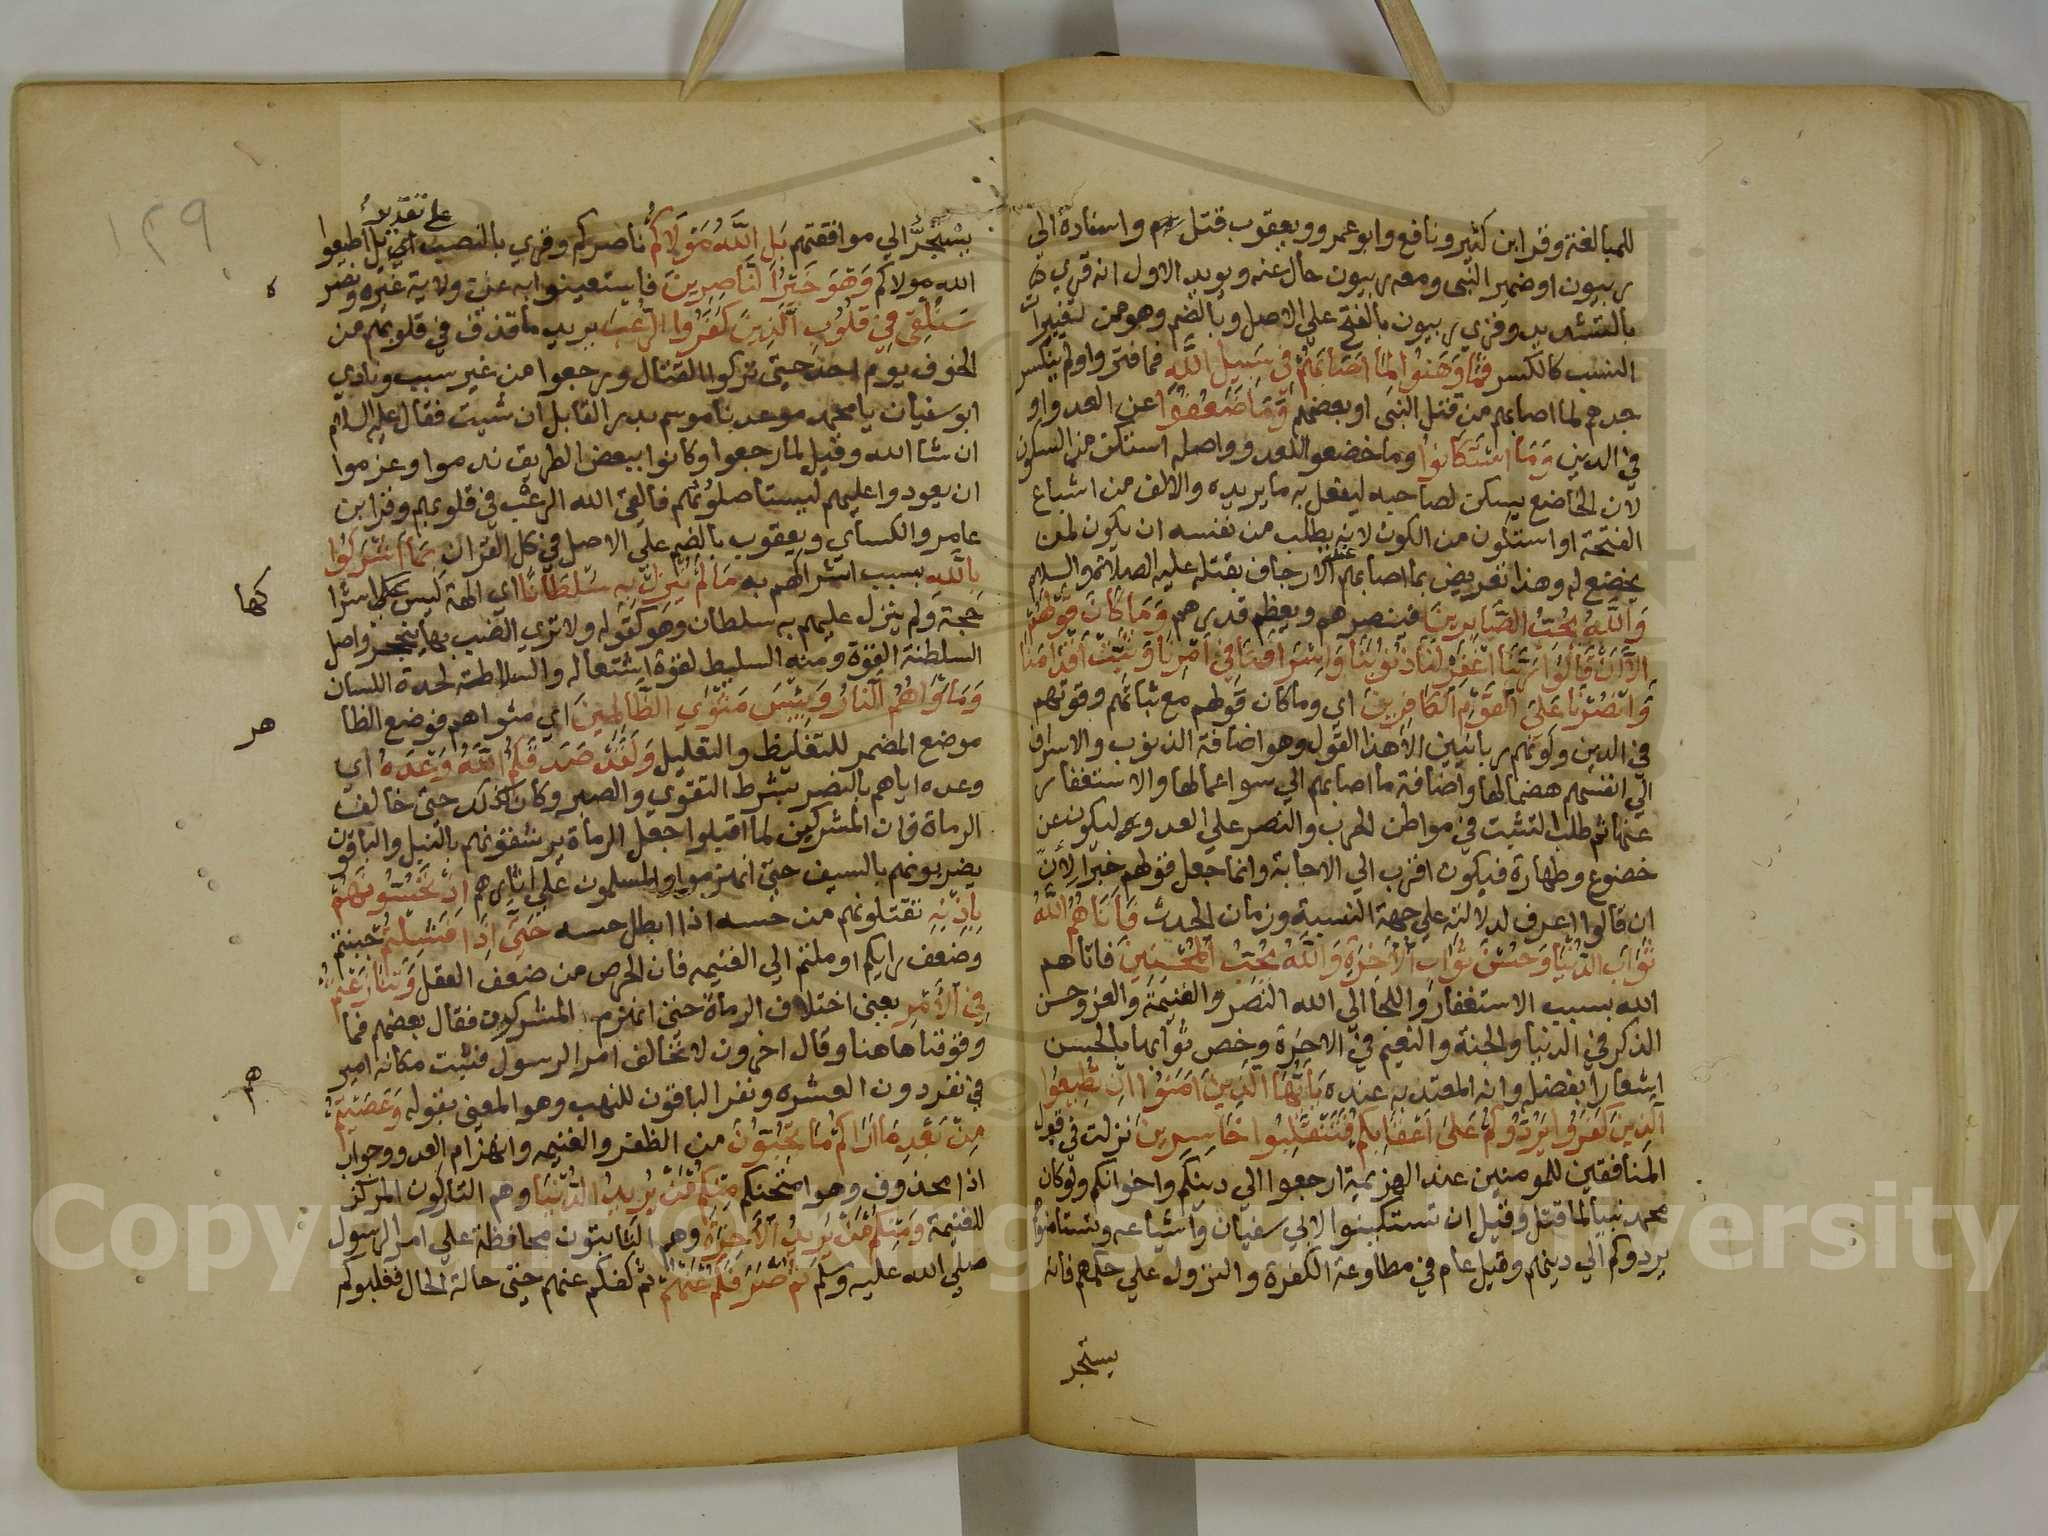 للمبالغة وقرا ابن كثير ونافع وابو عمرو ويعقوب قتل واسناده الي
ربيون او ضمير النبي ومعه ربيون حال عنه ويويد الاول انه قري
بالتشديد وقري ربيون بالفتح علي الاصل وبالضم وهو من تغييرات
النسب كالكسر فَمَا وَهَنُوا لِمَا اَصَابَهُمْ فِي سَبِيلِ اللَّهِ فما فتروا ولم ينكسر
جدهم لما اصابهم من قتل النبي او بعضهم وَمَا ضَعُفُوا عن العدو او
في الدين وَمَا اسْتَكَانُوا وما خضعوا للعدو واصله استكن من السكون
لان الخاضع يسكن لصاحبه ليفعل به ما يريده والالف من اشباع
الفتحة او استكون من الكون لانه يطلب من نفسه ان يكون لمن
يخضع له وهذا تعريض بما اصابهم عند الارجاف بقتله عليه الصلاة والسلام
وَاللَّهُ يُحِبُّ الصَّابِرِينَ فينصرهم ويعظم قدرهم وَمَا كَانَ قَوْلَهُمْ
اِلَّا اَنْ قَالُوا رَبَّنَا اغْفِرْ لَنَا ذُنُوبَنَا وَاِسْرَافَنَا فِي اَمْرِنَا وَثَبِّتْ اَقْدَامَنَا
وَانْصُرْنَا عَلَى الْقَوْمِ الْكَافِرِينَ اي وما كان قولهم مع ثباتهم وقوتهم
في الدين وكونهم ربانيين الا هذا القول وهو اضافة الذنوب والاسراف
الي انفسهم هضما لها واضافة ما اصابهم الي سوا اعمالها والاستغفار
عنها ثم طلب التثبيت في مواطن الحرب والنصر علي العدو ليكون عن
خضوع وطهارة فيكون اقرب الي الاجابة وانما جعل قولهم خبرا لأنّ
ان قالوا اعرف لدلالته علي جهة النسبة وزمان الحدث فَآتَاهُمُ اللَّهُ
ثَوَابَ الدُّنْيَا وَحُسْنَ ثَوَابِ الْآخِرَةِ وَاللَّهُ يُحِبُّ الْمُحْسِنِينَ فاتاهم
الله بسبب الاستغفار واللجا الي الله النصر والغنيمة والعز وحسن
الذكر في الدنيا والجنة والنعيم في الاخرة وخص ثوابها بالحسن
اشعارا بفضله وانه المعتد به عنده يَا أَيُّهَا الَّذِينَ آمَنُوا اِنْ تُطِيعُوا
الَّذِينَ كَفَرُوا يَرُدُّوكُمْ عَلَى اَعْقَابِكُمْ فَتَنْقَلِبُوا خَاسِرِينَ نزلت في قول
المنافقين للمومنين عند الهزيمة ارجعوا الي دينكم واخوانكم ولو كان
محمد نبيا لما قتل وقيل ان تستكينوا لابي سفيان واشياعه وتستامنوا
يردوكم الي دينهم وقيل عام في مطاوعة الكفرة والنزول علي حكمهم فانه
يستجر
١٢٩
علي تقدير
يستجرّ الي موافقتهم بَلِ اللَّهُ مَوْلَاكُمْ ناصركم وقري بالنصب اي بل اطيعوا
الله مولاكم وَهُوَ خَيْرُ النَّاصِرِينَ فاستعينوا به عن ولاية غيره ونصر
ه
سَنُلْقِي فِي قُلُوبِ الَّذِينَ كَفَرُوا الرُّعْبَ يريد ما قذف في قلوبهم من
الخوف يوم احد حتي تركوا القتال ورجعوا من غير سبب ونادي
ابو سفيان يا محمد موعدنا موسم بدر القابل ان شيت فقال عليه السلام
ان شا الله وقيل لما رجعوا وكانوا ببعض الطريق ندموا وعزموا
ان يعودوا عليهم ليستاصلوهم فالقي الله الرعب في قلوبهم وقرا ابن
عامر والكساي ويعقوب بالضم علي الاصل في كل القران بِمَا اَشْرَكُوا
بِاللَّهِ بسبب اشراكهم به مَا لَمْ يُنَزِّلْ بِهِ سُلْطَانًا اي الهة ليس علي اشرا
كها
حجة ولم ينزل عليهم به سلطان وهو كقوله ولا تري الضب بها ينجحر واصل
السلطنة القوة ومنه السليط لقوة اشتعاله والسلاطة لحدة اللسان
وَمَأْوَاهُمُ النَّارُ وَبِئْسَ مَثْوَي الظَّالِمِينَ اي مثواهم فوضع الظا
هر
موضع المضمر للتغليظ والتعليل وَلَقَدْ صَدَقَكُمُ اللَّهُ وَعْدَهُ اي
وعده اياهم بالنصر بشرط التقوي والصبر وكان كذلك حتي خالف
الرماة فان المشركين لما اقبلوا جعل الرماة يرشقونهم بالنبل والباقون
يضربونهم بالسيف حتي انهزموا والمسلمون علي اثارهم اِذْ تَحُسُّونَهُمْ
بِاِذْنِهِ تقتلونهم من حسه اذا ابطل حسه حَتَّى اِذَا فَشِلْتُمْ جبنتم
وضعف رايكم او ملتم الي الغنيمه فان الحرص من ضعف العقل وَتَنَازَعْتُمْ
فِي الْاَمْرِ يعني اختلاف الرماة حين انهزم المشركون فقال بعضهم فما
وقوفنا هاهنا وقال اخرون لا نخالف امر الرسول فثبت مكانه امير
هم
في نفر دون العشره ونفر الباقون للنهب وهو المعني بقوله وَعَصَيْتُمْ
مِنْ بَعْدِ مَا اَرَاكُمْ مَا تُحِبُّونَ من الظفر والغنيمه وانهزام العدو وجواب
اذا محذوف وهو امتحنكم مِنْكُمْ مَنْ يُرِيدُ الدُّنْيَا وهم التاركون المركز
للغنيمة وَمِنْكُمْ مَنْ يُرِيدُ الْآخِرَةَ وهم الثابتون محافظة علي امر الرسول
صلي الله عليه وسلم ثُمَّ صَرَفَكُمْ عَنْهُمْ ثم كفكم عنهم حتي حالة الحال فغلبوكم
Copyright © King Saud University